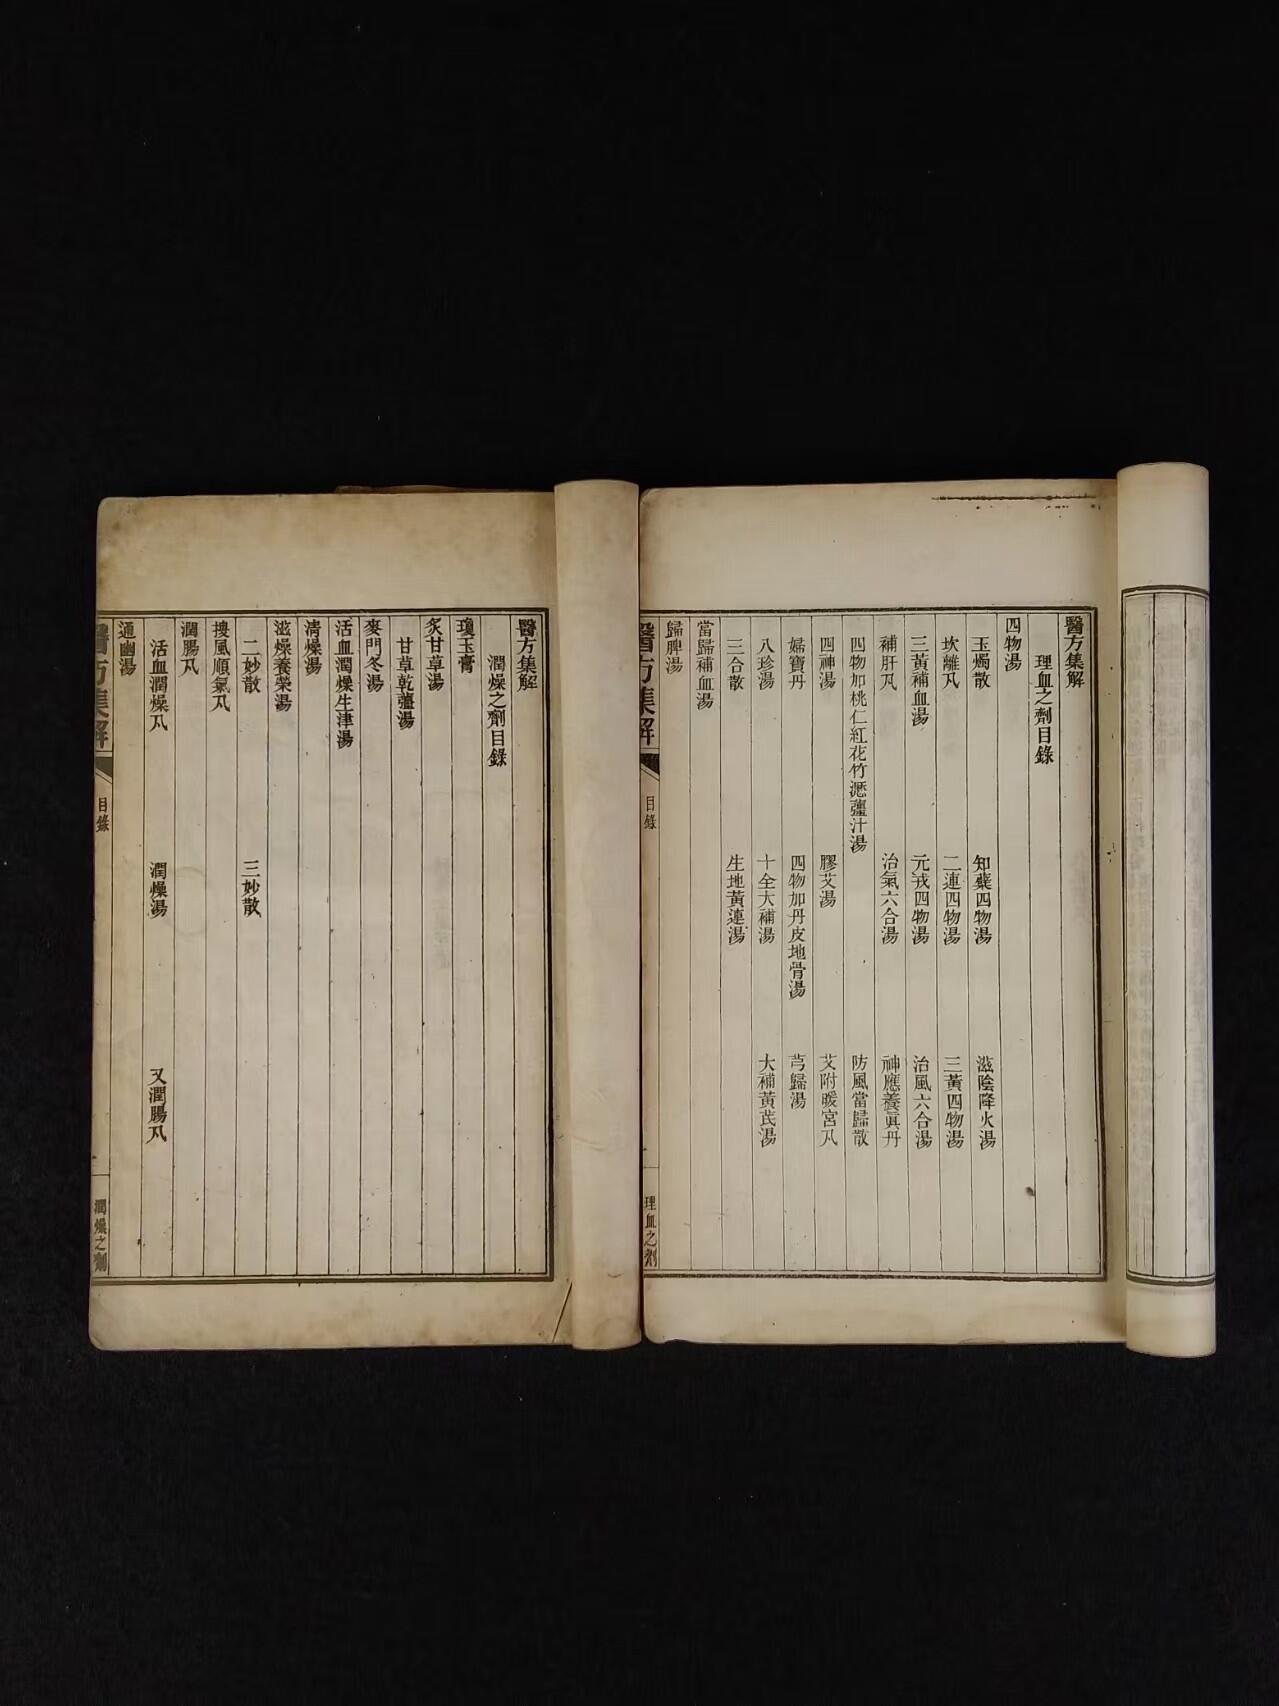 醫方集解
理血之劑目錄
四物湯
玉燭散 知蘗四物湯 滋陰降火湯
坎離丸 二連四物湯 三黃四物湯
三黃補血湯 元戎四物湯 治風六合湯
補肝丸 治氣六合湯 神應養眞丹
四物加桃仁紅花竹瀝薑汁湯 防風當歸散
四神湯 膠艾湯 艾附暖宮丸
婦寶丹 四物加丹皮地骨湯 芎歸湯
八珍湯 十全大補湯 大補黃芪湯
三合散 生地黃連湯
當歸補血湯
歸脾湯
醫方集解 目錄 理血之劑
醫方集解
潤燥之劑目錄
瓊玉膏
炙甘草湯
甘草乾薑湯
麥門冬湯
活血潤燥生津湯
清燥湯
滋燥養榮湯
二妙散 三妙散
搜風順氣丸
潤腸丸
活血潤燥丸 潤燥湯 又潤腸丸
通幽湯
醫方集解 目錄 潤燥之劑